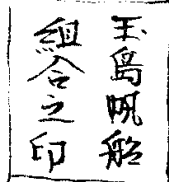 玉島帆船
組合之印